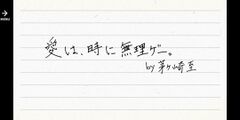 愛は、時に無理ゲー。
by 茅ヶ崎至
MENU